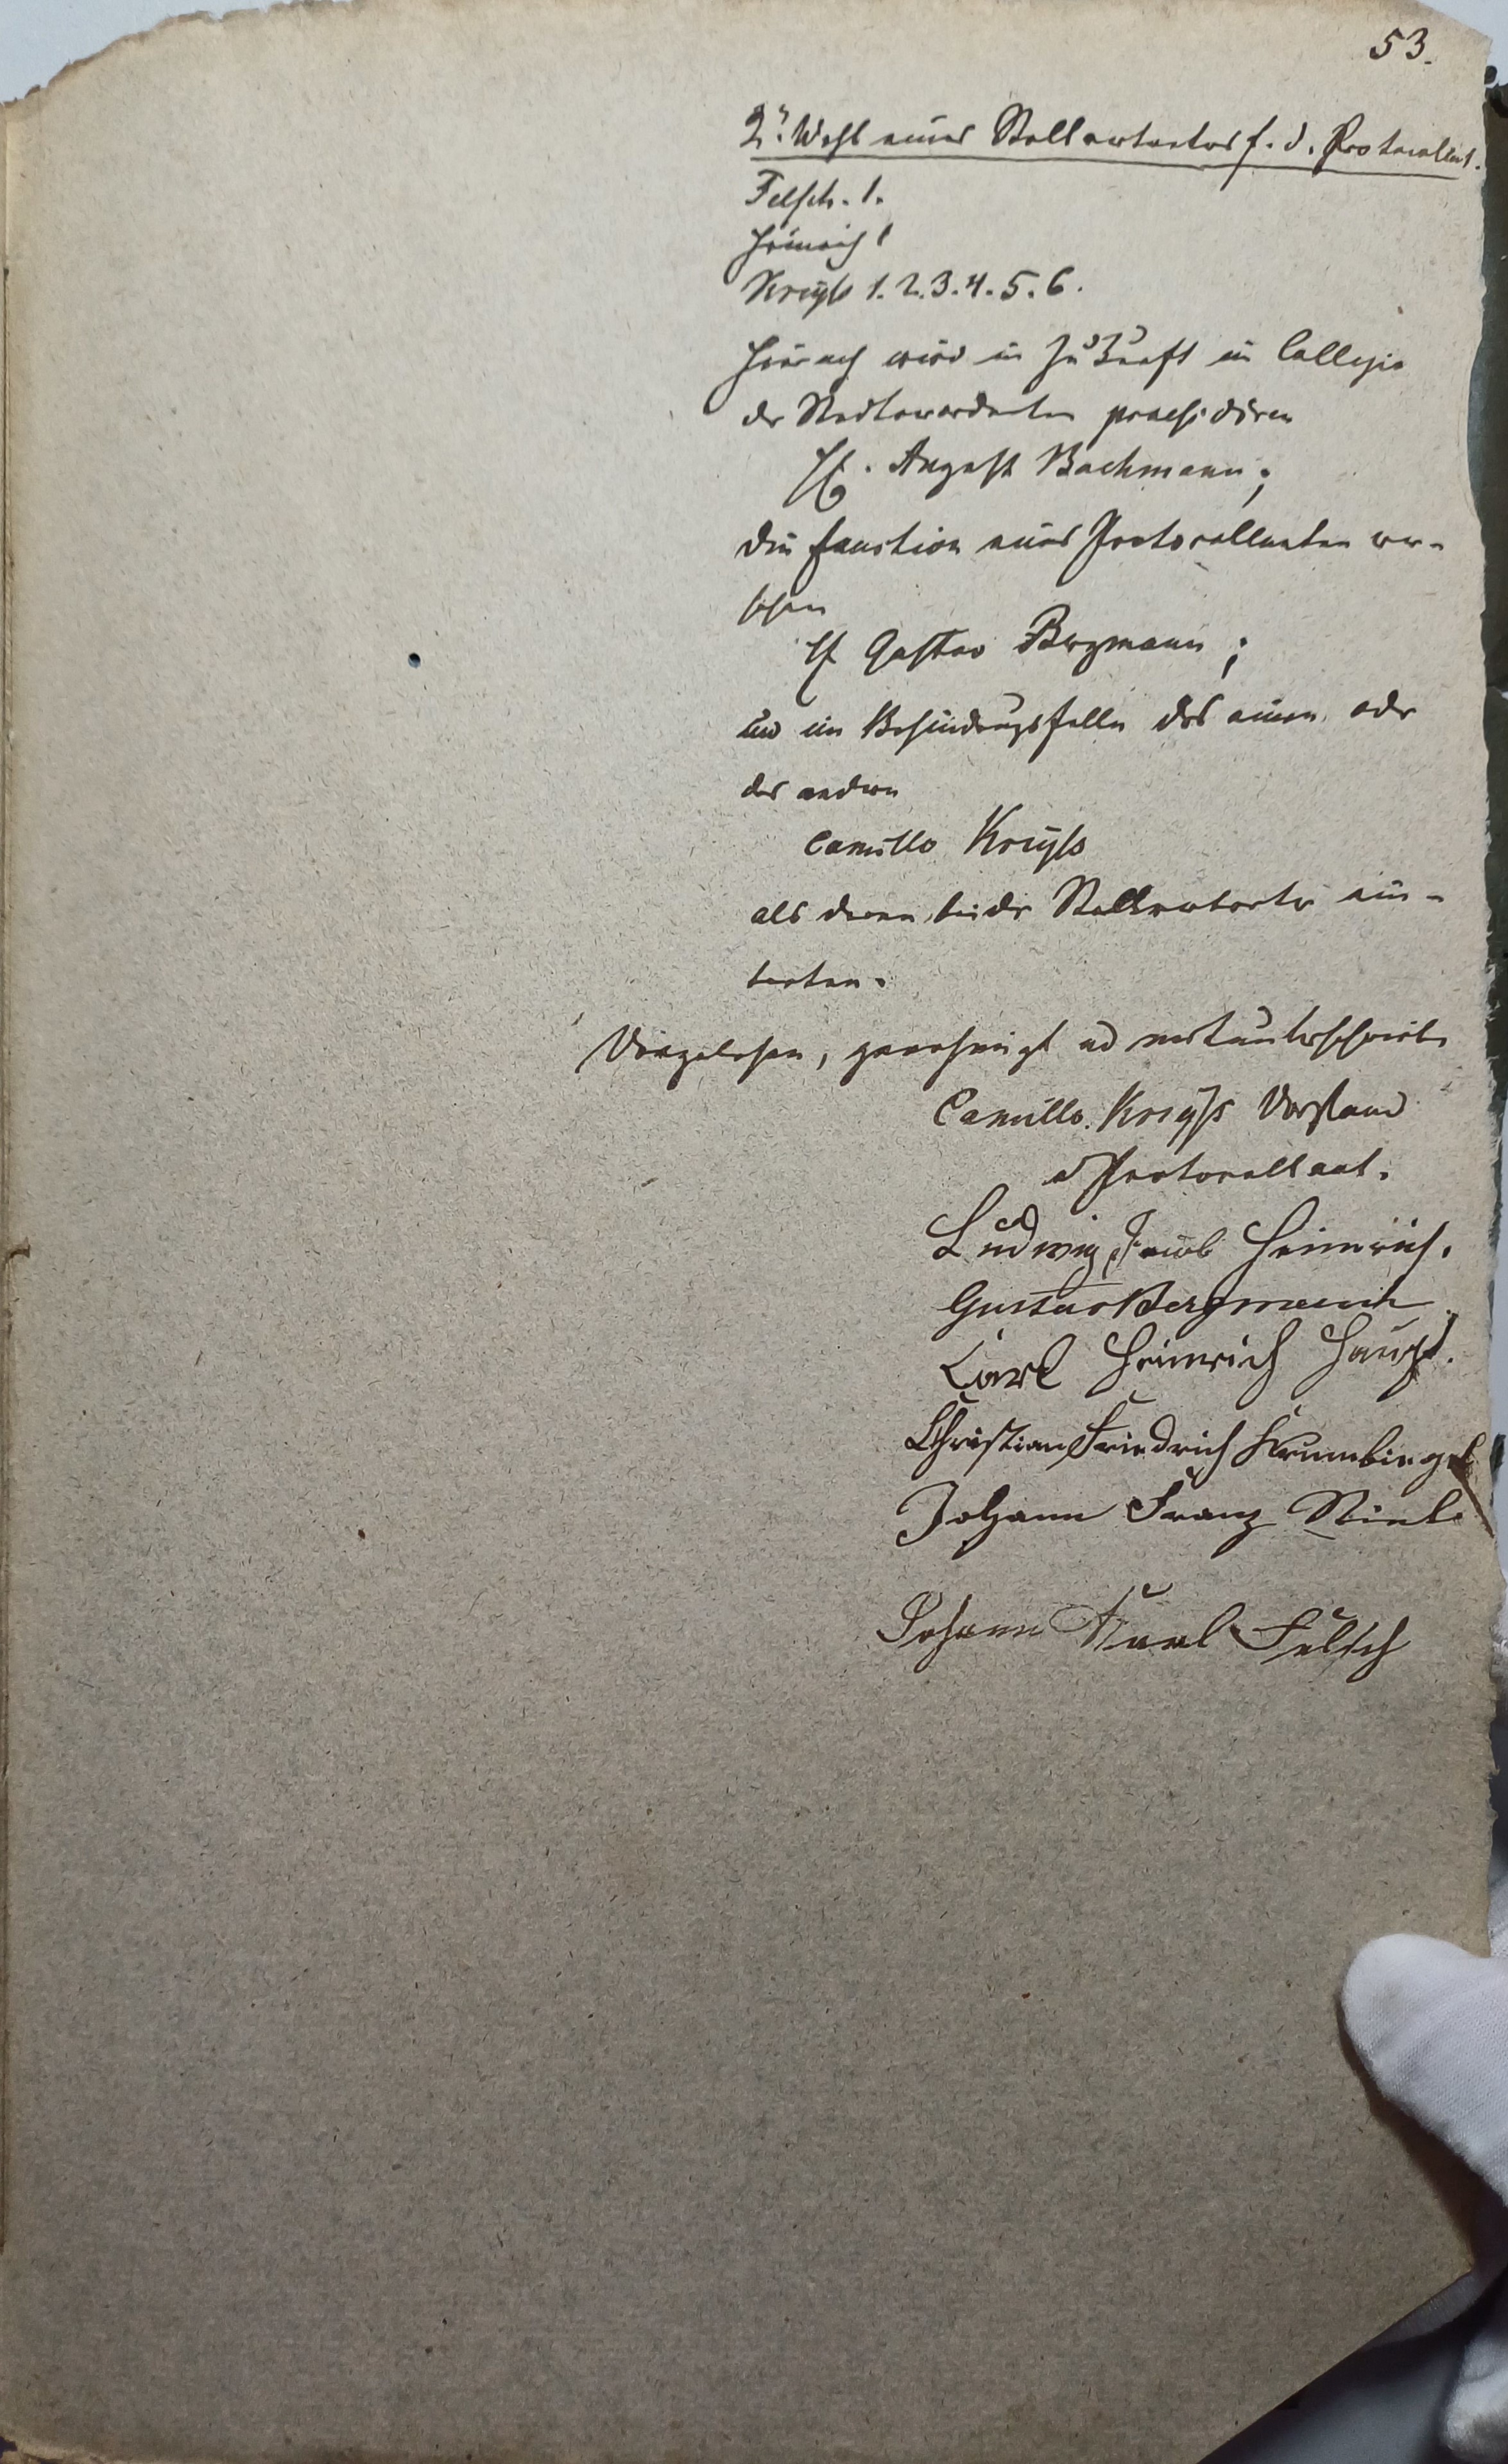 53.
2, Wahl eines Stellvertreters f. d. Protocollant.
Felsch. 1.
Heinrich 1
Kreyß 1. 2. 3. 4. 5. 6.
Hiernach wird in Zukunft im Collegio
der Stadtverordneten praesidiren
H. August Bachmann;
die Function eines Protocollanten ver-
sehen
H Gustav Bergmann;
und im Behinderungsfalle des einen oder
des andern
Camillo Kreyß
als deren beider Stellvertreter ein-
treten.
Vorgelesen, genehmigt und mitunterschrieben
Camillo Kreyß Vorstand
u Protocollant.
Ludwig Jacob Heinrich.
Gustav Bergmann
Carl Heinrich Haupt.
Christian Friedrich Krumbiegel
Johann Franz
Johann Karl Felsch